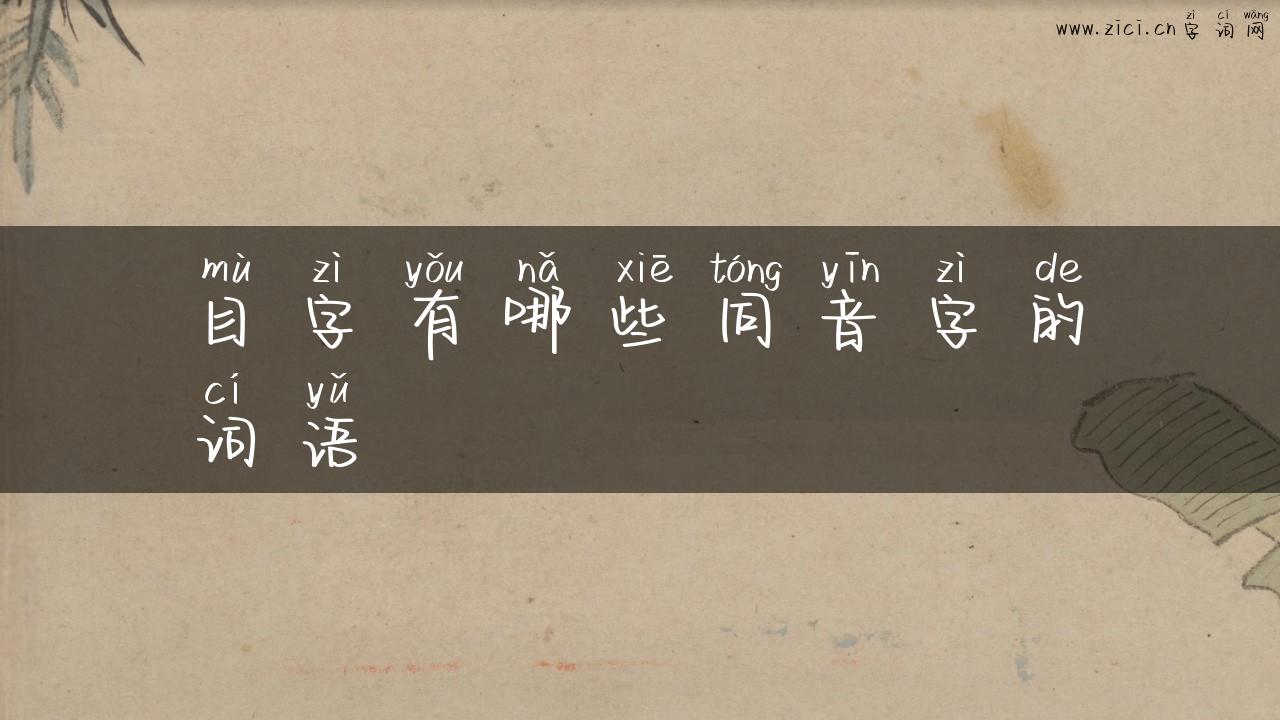 zì cí wǎng
www.zici.cn 字词网
mù zì yǒu nǎ xiē tóng yīn zì de
目字有哪些同音字的
cí yǔ
词语